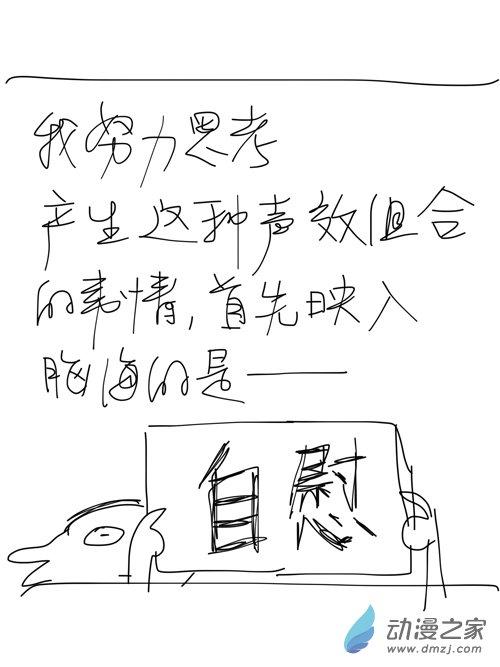 我努力思考
产生这种声效组合
的事情,首先映入
脑海的是——
自慰
动漫之家
www.dmzj.com